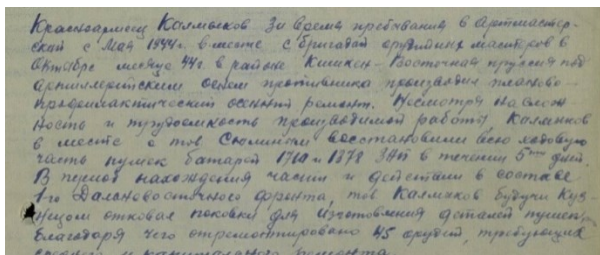 Красноармеец Калмыков За время пребывания в артмастер-
ской с Мая 1944г. вместе с бригадой орудийных мастеров в
Октябре месяце 44г. в районе Восточная пруссия под
артиллерийским огнем противника производил планово-
профилактический осмотр ремонт. Несмотря на слож
ность и трудоемкость производимой работы, Калмыков
в месте с тов. восстановили всю ходовую
часть пушек батарей 1716 и 1378 ЗАП в течении 5ти дней.
В период нахождения части и действии в составе
1-го Дальневосточного фронта, тов Калмыков будучи Куз-
нецом отковал поковки для изготовления деталей пушек,
благодаря чего отремонтировано 45 орудий, требующих
среднего и капитального ремонта